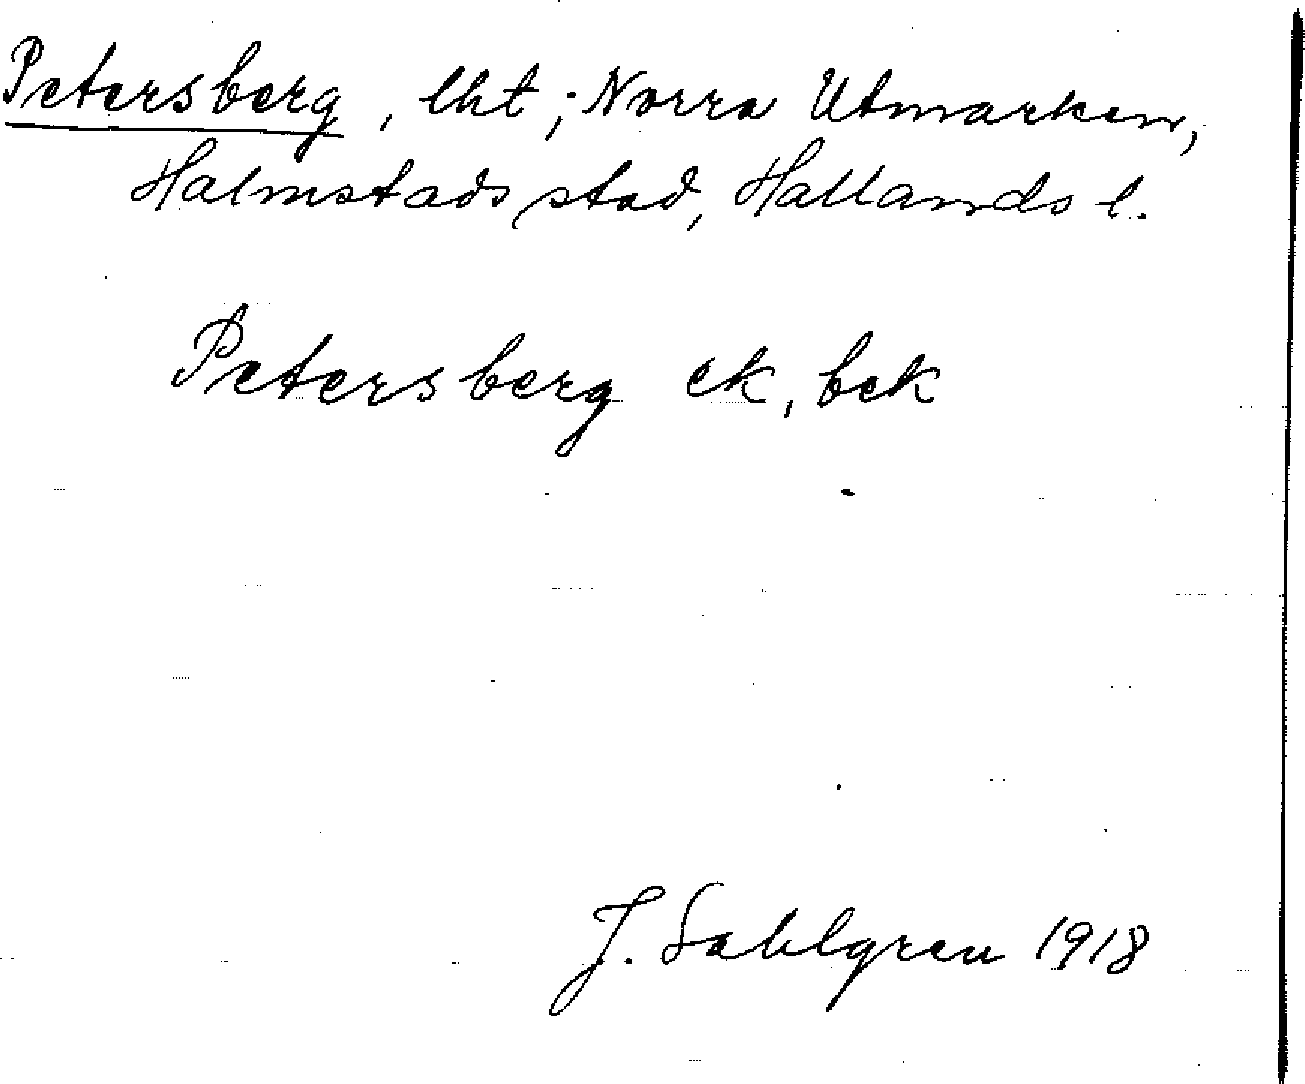 Petersberg, lht; Norra Utmarken,
Halmstads stad, Hallands l.
Petersberg ek, bek
J. Sahlgren 1918